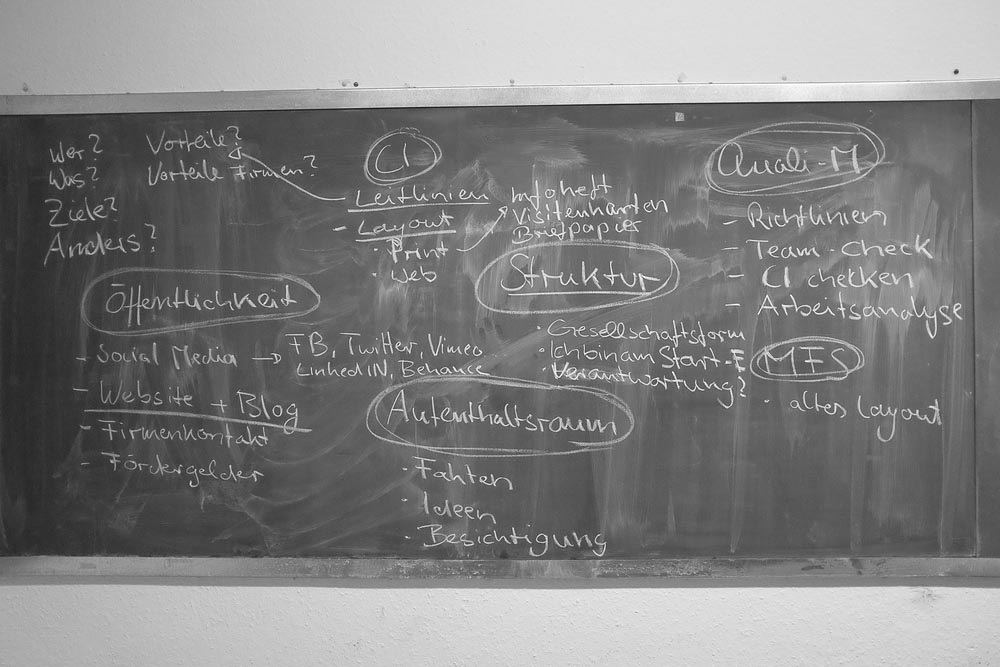 Wer?
Was?
Ziele?
Anders?
Vorteile?
Vorteile Firmen?
CI
- Leitlinien
- Layout
· Print
· Web
Infoheft
Visitenkarten
Briefpapier
Quali-M
- Richtlinien
- Team-Check
- CI checken
- Arbeitsanalyse
Öffentlichkeit
- Social Media → FB, Twitter, Vimeo
LinkedIN, Behance
- Website + Blog
- Firmenkontakt
- Fördergelder
Struktur
· Gesellschaftsform
· Ichbinam Start-E
· Verantwortung?
MFS
· altes Layout
Aufenthaltsraum
· Fakten
· Ideen
· Besichtigung